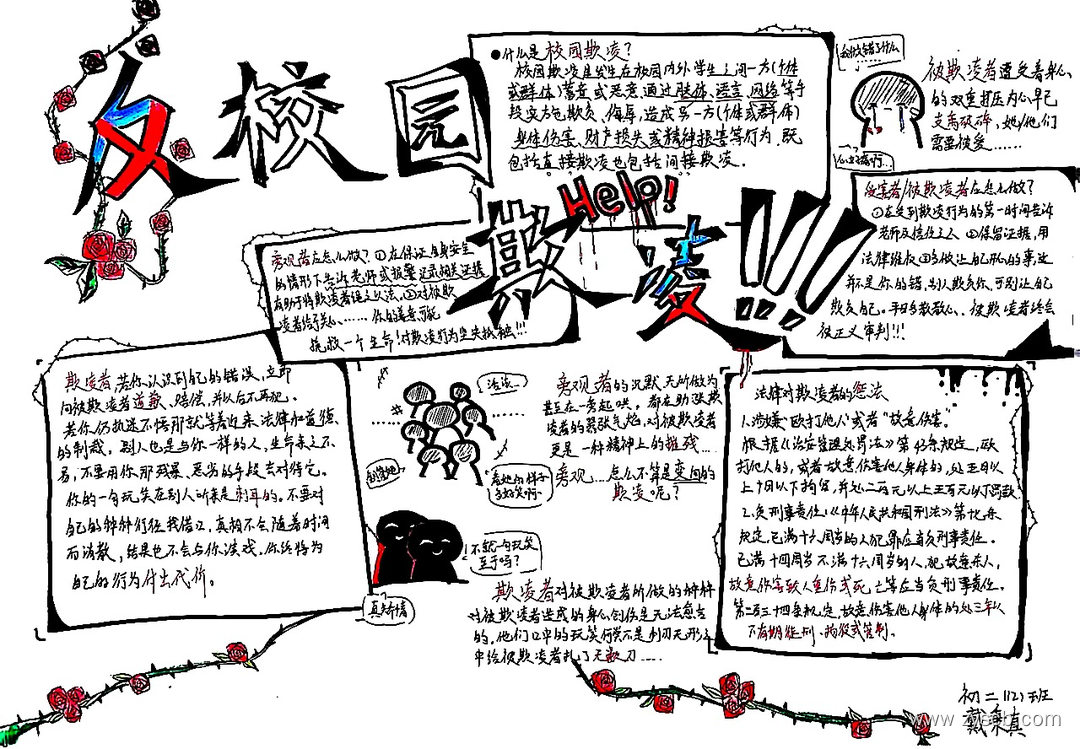 反校园
欺凌!!!
Help!
●什么是校园欺凌?
校园欺凌是发生在校园内外学生之间一方(个体
或群体)蓄意或恶意通过肢体、语言、网络等手
段实施欺负、侮辱,造成另一方(个体或群体)
身体伤害、财产损失或精神损害等行为,既
包括直接欺凌也包括间接欺凌.
我做错了什么
被欺凌者遭受着身心
的双重打压内心早已
支离破碎,她/他们
需要被爱……
受害者/被欺凌者应怎么做?
①在受到欺凌行为的第一时间告诉
老师及信任之人 ②保留证据,用
法律维权 ③多做让自己开心的事这
并不是你的错,别人欺负你,可别让自己
欺负自己.平日多散散心、被欺凌者终会
被正义审判!!!
旁观者应怎么做?①在保证自身安全
的情形下告诉老师或报警 记录相关证据
有助于将欺凌者绳之以法,②对被欺
凌者给予关心、……你的善意可能
挽救一个生命!对欺凌行为坚决抵触!!!
欺凌者 若你认识到自己的错误,立即
向被欺凌者道歉、赔偿,并从此不再犯.
若你仍执迷不悟那就等着迎来法律和道德
的制裁,别人也是与你一样的人,生命来之不
易,不要用你那残暴、恶劣的手段去对待它.
你的一句玩笑在别人听来是刺耳的.不要对
自己的种种行径找借口,真相不会随着时间
而消散,结果也不会与你淡戏.你终将为
自己的行为付出代价.
活该…
看她的样子
多好笑啊~
旁观者的沉默无所做为
甚至在一旁起哄,都在助涨欺
凌者的嚣张气焰,对被欺凌者
更是一种精神上的摧残…
旁观…怎么不算是变向的
欺凌呢?
不就一句玩笑
至于吗?
真矫情
欺凌者对被欺凌者所做的种种
对被欺凌者造成的身心创伤是无法愈合
的,他们口中的玩笑何尝不是利刃无形之
中给被欺凌者扎了无数刀……
法律对欺凌者的惩法
1.涉嫌"殴打他人"或者"故意伤害".
根据《治安管理处罚法》第43条规定,殴
打他人的,或者故意伤害他人身体的,处五日以
上十日以下拘留,并处二百元以上五百元以下罚款
2.负刑事责任:《中华人民共和国刑法》第17条
规定,已满十六周岁的人犯罪应当负刑事责任.
已满十四周岁不满十六周岁的人,犯故意杀人,
故意伤害致人重伤或死亡等应当负刑事责任.
第二百三十四条规定,故意伤害他人身体的处三年以
下有期徒刑、拘役或管制.
初二(12)班